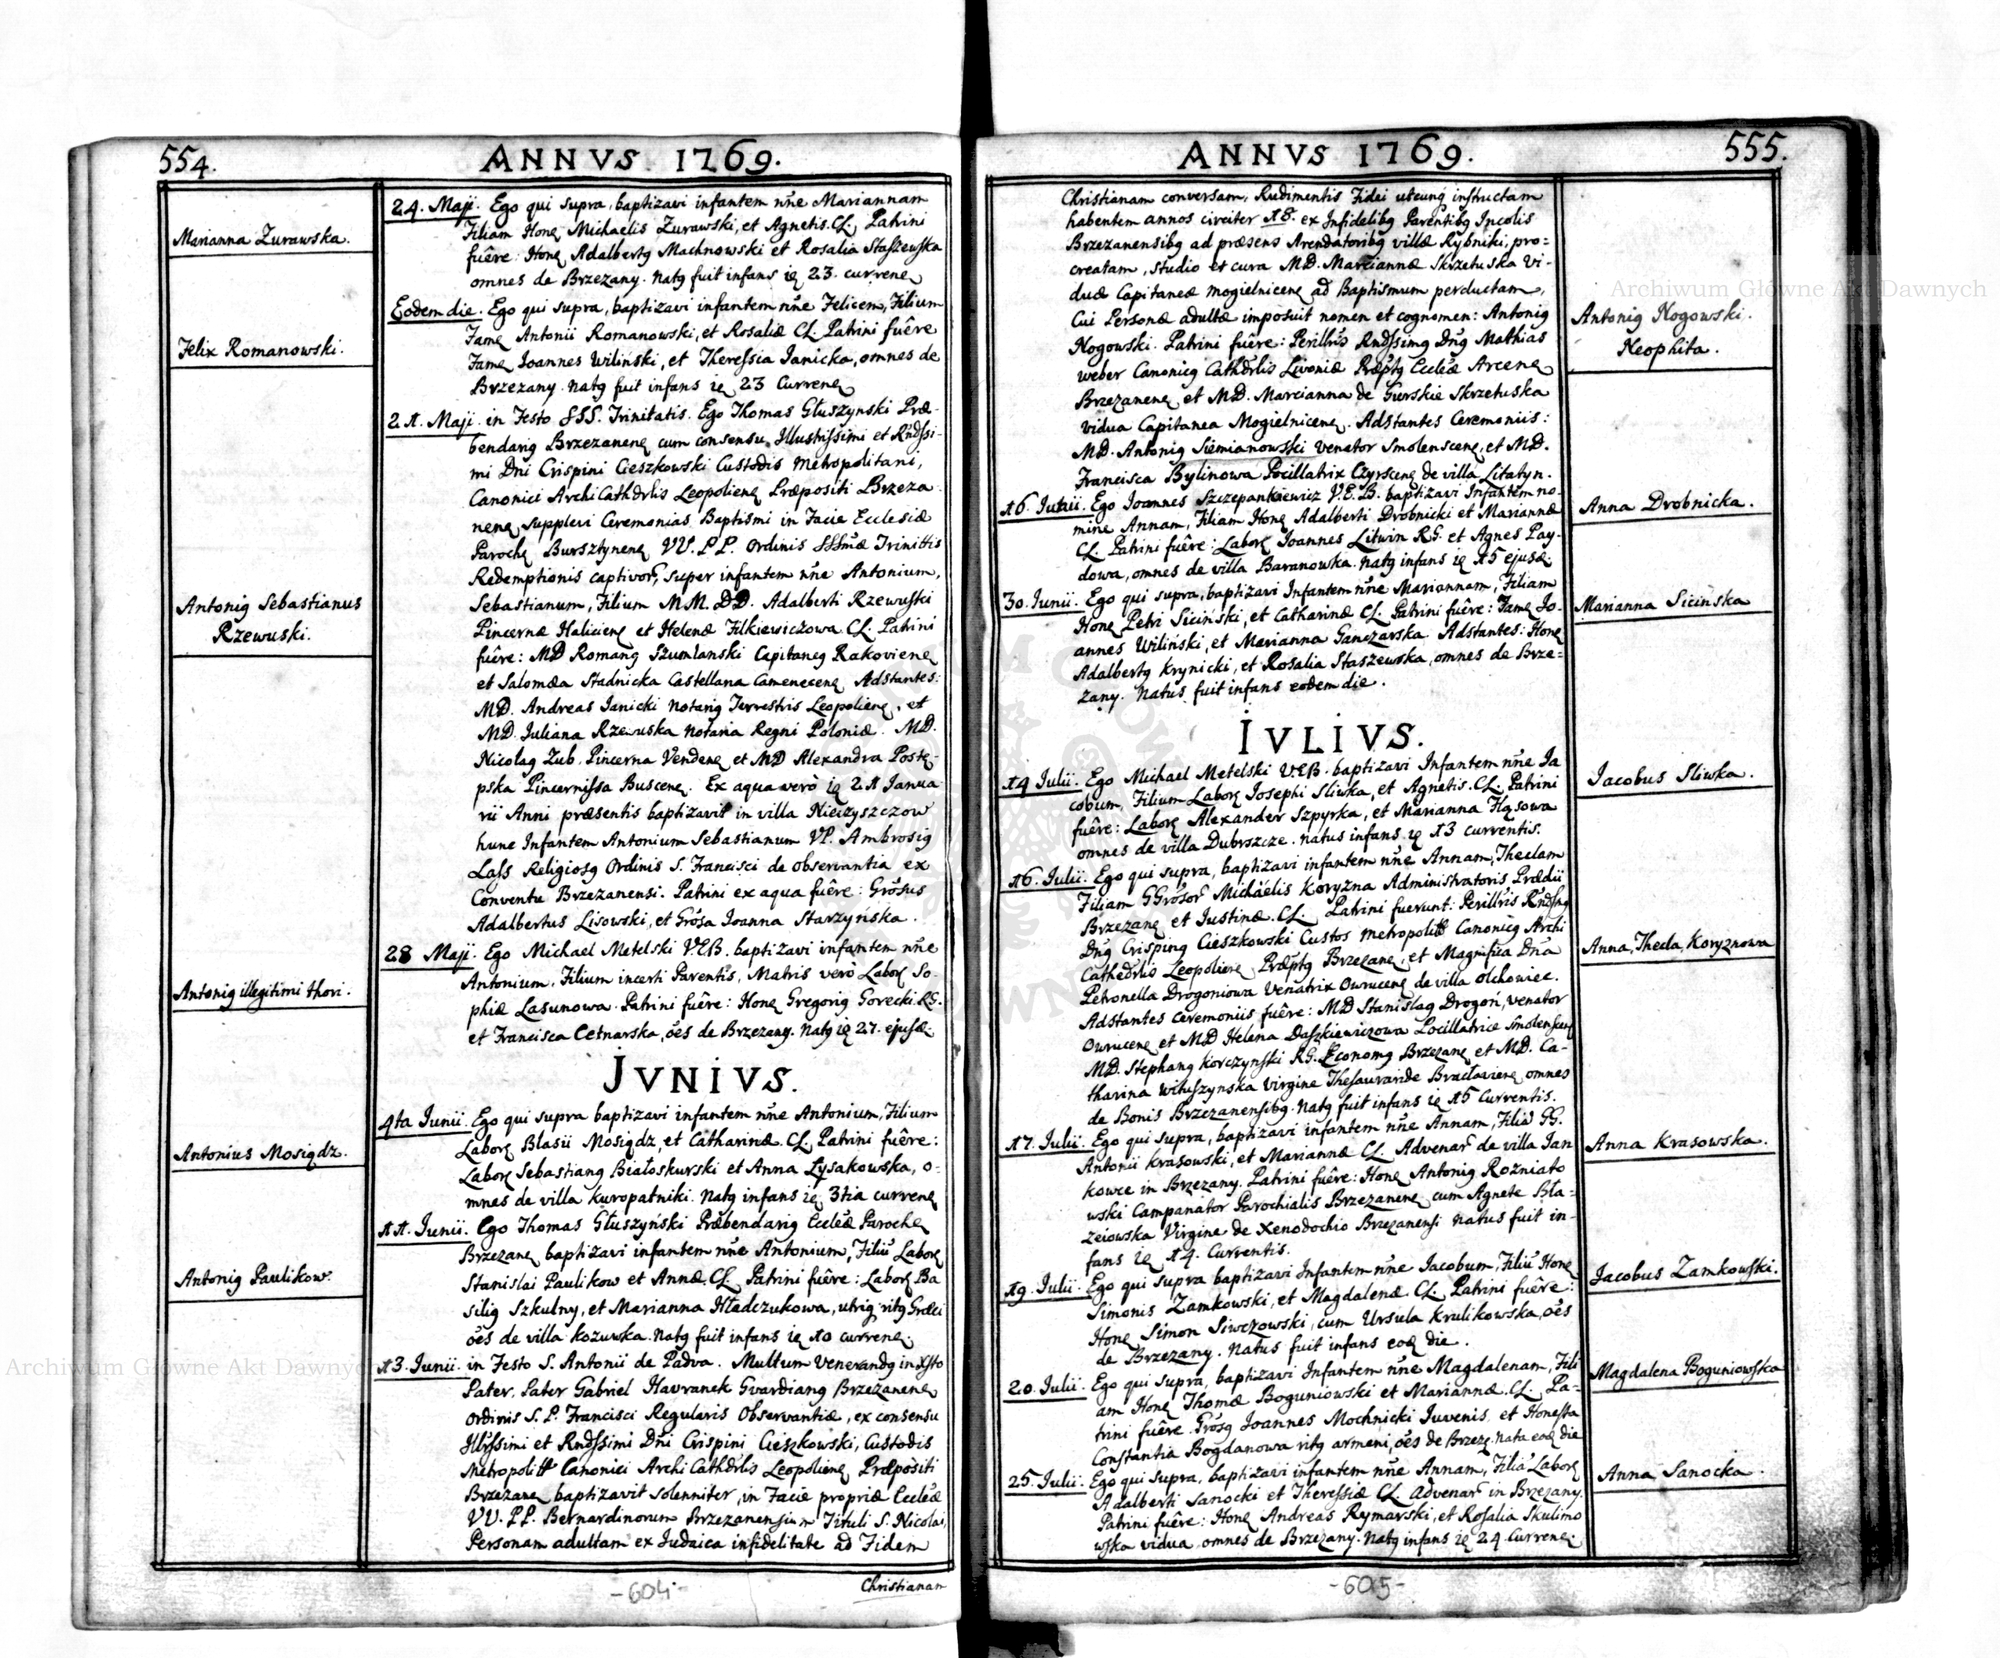 554.
ANNVS 1769.
Marianna Zurawska.
Felix Romanowski.
Antonig Sebastianus
Rzewuski.
Antonig illegitimi thori.
Antonius Mosiądz.
Antonig Paulikow.
24. Maji. Ego qui supra, baptizavi infantem nne Mariannam
Filiam Honę Michaelis Zurawski, et Agnetis. CL. Patrini
fuêre: Honę Adalbertg Machnowski et Rosalia Staszewska
omnes de Brzezany. Natg fuit infans ię 23. currenę
Eodem die. Ego qui supra, baptizavi infantem nne Felicem, Filium
Famę Antonii Romanowski, et Rosaliæ CL. Patrini fuêre
Famę Joannes Wiliński, et Theressia Janicka, omnes de
Brzezany. Natg fuit infans ię 23 Currenę
21. Maji. in Festo SSS. Trinitatis. Ego Thomas Głuszynski Præ-
bendarig Brzezanenę cum consensu Illustrissimi et Rndssi-
mi Dni Crispini Cieszkowski Custodis Metropolitani,
Canonici ArchiCathdrlis Leopolienę Præpositi Brzeza
nenę, supplevi Ceremonias Baptismi in Facie Ecclesiæ
Parochę Bursztynenę VV. P.P. Ordinis SSSmæ Trinittis
Redemptionis captivor, super infantem nne Antonium,
Sebastianum, Filium M.M. DD. Adalberti Rzewuski
Pincernæ Halicienę et Helenæ Filkiewiczowa CL. Patrini
fuêre: MD Romang Szumlanski Capitaneg Rakovienę
et Salomæa Stadnicka Castellana Camenecenę Adstantes:
MD. Andreas Janicki Notarig Terrestris Leopolienę, et
MD. Juliana Rzewuska Notaria Regni Poloniæ. MD.
Nicolag Zub. Pincerna Vendenę et MD Alexandra Postę-
pska Pincernissa Buscenę. Ex aqua verò ię 21 Janua
rii Anni præsentis baptizavit in villa Nieczyszczow
hunc Infantem Antonium Sebastianum VP. Ambrosig
Lass Religiosg Ordinis S. Francisci de Observantia ex
Conventu Brzezanensi. Patrini ex aqua fuêre: Grosus
Adalbertus Lisowski, et Grosa Joanna Starzyńska.
28 Maji. Ego Michael Metelski V.E.B. baptizavi infantem nne
Antonium, Filium incerti Parentis, Matris verò Laborę So-
phiæ Lasunowa. Patrini fuêre: Honę Gregorig Gorecki. RG.
et Francisca Cetnarska, oes de Brzezany. Natg ię 27. ejusdę
JVNIVS.
4ta Junii. Ego qui supra baptizavi infantem nne Antonium, Filium
Laborę Blasii Mosiądz, et Catharinæ. CL. Patrini fuêre:
Laborę Sebastiang Białoskurski et Anna Łysakowska, o-
mnes de villa Kuropatniki. Natg infans ię 3tia currenę
11. Junii. Ego Thomas Głuszyński Præbendarig Eccleæ Parochę
Brzezanę baptizavi infantem nne Antonium, Filiu Laborę
Stanislai Paulikow et Annæ. CL. Patrini fuêre: Laborę Ba
silig Szkulny, et Marianna Hładczukowa, utrig ritg Græci
oes de villa Kozuwka. Natg fuit infans ię 10 currenę.
13. Junii. in Festo S. Antonii de Padva. Multum Venerandg in Xsto
Pater, Pater Gabriel Havranek Gvardiang Brzezanenę
Ordinis S. P. Francisci Regularis Observantiæ, ex consensu
Illrissimi et Rndssimi Dni Crispini Cieszkowski, Custodis
Metropolitt Canonici ArchiCathdrlis Leopolienę Præpositi
Brzezanę baptizavit solenniter, in Facie propriæ Eccleæ
VV. PP. Bernardinorum Brzezanensium Tituli S. Nicolai,
Personam adultam ex Judaica infidelitate ad Fidem
Christianam
-604-
ANNVS 1769.
555.
Christianam conversam, Rudimentis Fidei utcung instructam
habentem annos circiter 18. ex Infidelibg Parentibg Incolis
Brzezanensibg ad præsens Arendatoribg villæ Rybniki, pro=
creatam, studio et cura MD. Marciannæ Skrzetuska Vi-
duæ Capitaneæ Mogielnicenę ad Baptismum perductam,
Cui Personæ adultæ imposuit nomen et cognomen: Antonig
Nogowski. Patrini fuêre: Perillris Rndssimg Dng Mathias
Weber Canonicg Cathdrlis Livoniæ Præptg Eccleæ Arcenę
Brzezanenę et MD. Marcianna de Gurskie Skrzetuska
vidua Capitanea Mogielnicenę. Adstantes Ceremoniis:
MD. Antonig Siemianowski Venator Smolenscenę, et MD.
Francisca Bylinowa Pocillatrix Czyrscenę de villa Litatyn.
16. Junii. Ego Joannes Szczepankiewicz V.E.B. baptizavi Infantem no-
mine Annam, Filiam Honę Adalberti Drobnicki et Mariannæ
CL. Patrini fuêre: Laborę Joannes Litwin RG. et Agnes Pay-
dowa, omnes de villa Baranowka. Natg infans ię 15 ejusdę
30. Junii. Ego qui supra, baptizavi Infantem nne Mariannam, Filiam
Honę Petri Siciński, et Catharinæ CL. Patrini fuêre: Famę Jo-
annes Wiliński, et Marianna Ganczarska. Adstantes: Honę
Adalbertg Krynicki, et Rosalia Staszewska, omnes de Brze=
zany. Natus fuit infans eodem die.
IVLIVS.
14 Julii. Ego Michael Metelski VEB. baptizavi Infantem nne Ja
cobum, Filium Laborę Josephi Sliwka, et Agnetis. CL. Patrini
fuêre: Laborę Alexander Szpyrka, et Marianna Hąsowa
omnes de villa Dubrszcze. Natus infans ię 13 currentis.
16. Julii. Ego qui supra, baptizavi infantem nne Annam, Theclam
Filiam GGrosor Michäelis Koryzna Administratoris Prædii
Brzezanę et Justinæ. CL. Patrini fuerunt: Perillris Rndssmg
Dng Crisping Cieszkowski Custos Metropolitt Canonicg Archi
Cathedrlis Leopolienę, Præptg Brzezanę, et Magnifica Dna
Petronella Drogoniowa Venatrix Owrucenę de villa Olchowiec.
Adstantes ceremoniis fuêre: MD Stanislag Drogoń, Venator
Owrucenę et MD Helena Daszkiewiczowa Pocillatrice Smolenscenę
MD. Stephang Korczynski RG. Economg Brzezanę et MD. Ca-
tharina Wituszynska Virgine Thesauraride Bracłavienę omnes
de Bonis Brzezanensibg. Natg fuit infans ię 15 Currentis.
17. Julii. Ego qui supra, baptizavi infantem nne Annam, Filia GG.
Antonii Krasowski, et Mariannæ CL. Advenar de villa Jan
kowce in Brzezany. Patrini fuêre: Honę Antonig Rozniato
wski Campanator Parochialis Brzezanenę cum Agnete Bła-
zeiowska Virgine de Xenodochio Brzezanensi Natus fuit in-
fans ię 14. Currentis.
19. Julii. Ego qui supra baptizavi Infantem nne Jacobum, Filiu Honę
Simonis Zamkowski, et Magdalenæ. CL. Patrini fuêre:
Honę Simon Siwczowski, cum Ursula Krulikowska, oes
de Brzezany. Natus fuit infans eoq die.
20. Julii. Ego qui supra, baptizavi Infantem nne Magdalenam, Fili
am Honę Thomæ Boguniowski et Mariannæ. CL. Pa-
trini fuêre. Grosg Joannes Mochnicki Juvenis, et Honesta
Constantia Bogdanowa ritg armeni, oes de Brzezę. Nata eoq die
25. Julii. Ego qui supra, baptizavi infantem nne Annam, Filia Laborę
Adalberti Sanocki et Theressiæ CL. Advenar in Brzezany.
Patrini fuêre: Honę Andreas Rymarski, et Rosalia Skulimo
wska vidua, omnes de Brzezany. Natg infans ię 24 Currenę.
Antonig Nogowski.
Neophita.
Anna Drobnicka.
Marianna Sicińska
Jacobus Sliwka.
Anna, Thecla, Koryznowa
Anna Krasowska.
Jacobus Zamkowski.
Magdalena Boguniowska
Anna Sanocka.
-605-
Archiwum Główne Akt Dawnych
Archiwum Główne Akt Dawnych